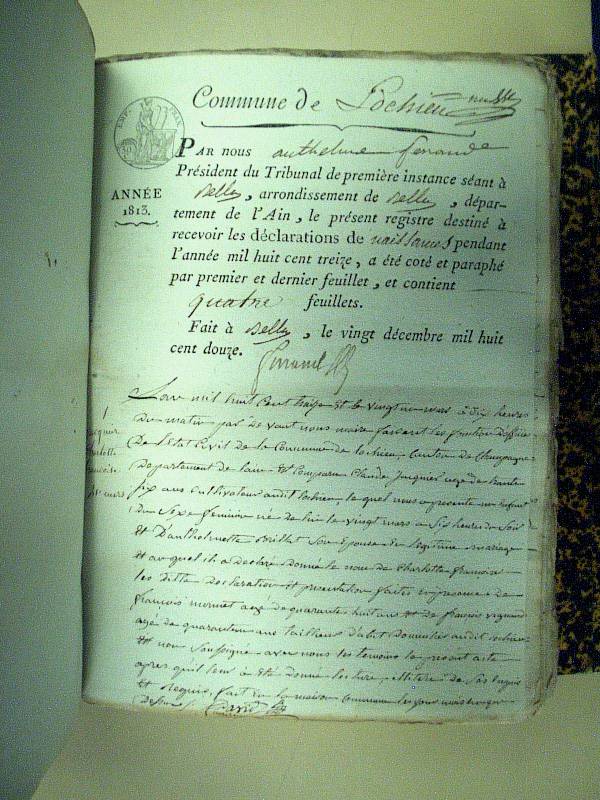 Commune de Lochieu
PAR nous anthelme ferrand
Président du Tribunal de première instance séant à
Belley, arrondissement de Belley, dépar-
tement de l'Ain, le présent registre destiné à
recevoir les déclarations de naissances pendant
l'année mil huit cent treize, a été coté et paraphé
par premier et dernier feuillet, et contient
quatre feuillets.
Fait à Belley, le vingt décembre mil huit
cent douze.
ferrand
ANNÉE
1813.
L'an mil huit cent treize et le vingt un mars à dix heures
du matin par devant nous maire faisant les fonctions d'officier
de l'Etat Civil de la Commune de lochieu Canton de Champagne
Departement de l'ain Est Comparu Claude Jurquet agé de trente
six ans cultivateur audit lochieu, lequel nous a presenté un Enfant
du Sexe feminin né de hier le vingt mars a Six heures du Soir
Et D'anthelmette Son Epouse de legitime mariage
Et auquel il a declaré donner le nom de Charlotte françoise
les ditte declaration Et presentation faites en presence de
françois agé de quarante huit ans Et de françois
agé de quarante ans tailleurs d'abit Domiciliés audit lochieu
Et nous Soussigné avec nous les temoins le present acte
apres qu'il leur a Eté donné lecture
Et Requis, fait en la maison Commune les jour mois
David